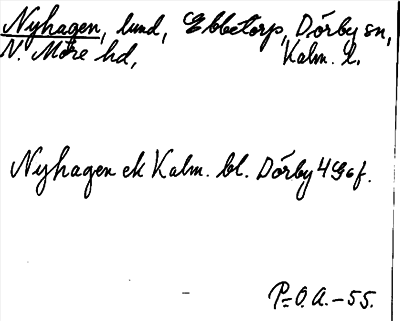 Nyhagen, lund, Ebbetorp, Dörby sn,
N. Möre hd, Kalm. l.
Nyhagen ek Kalm. bl. Dörby 4 Gef.
P-O.A.-55.